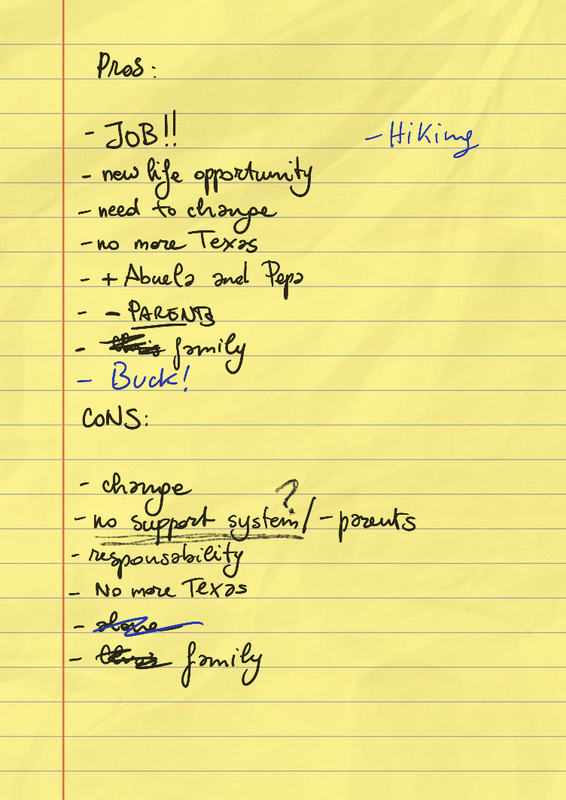 Pros:
- JOB!!
- Hiking
- new life opportunity
- need to change
- no more Texas
- + Abuela and Pepa
- - PARENTS
- family
- Buck!
CONS:
- change
?
- no support system / - parents
- responsability
- No more Texas
-
- family